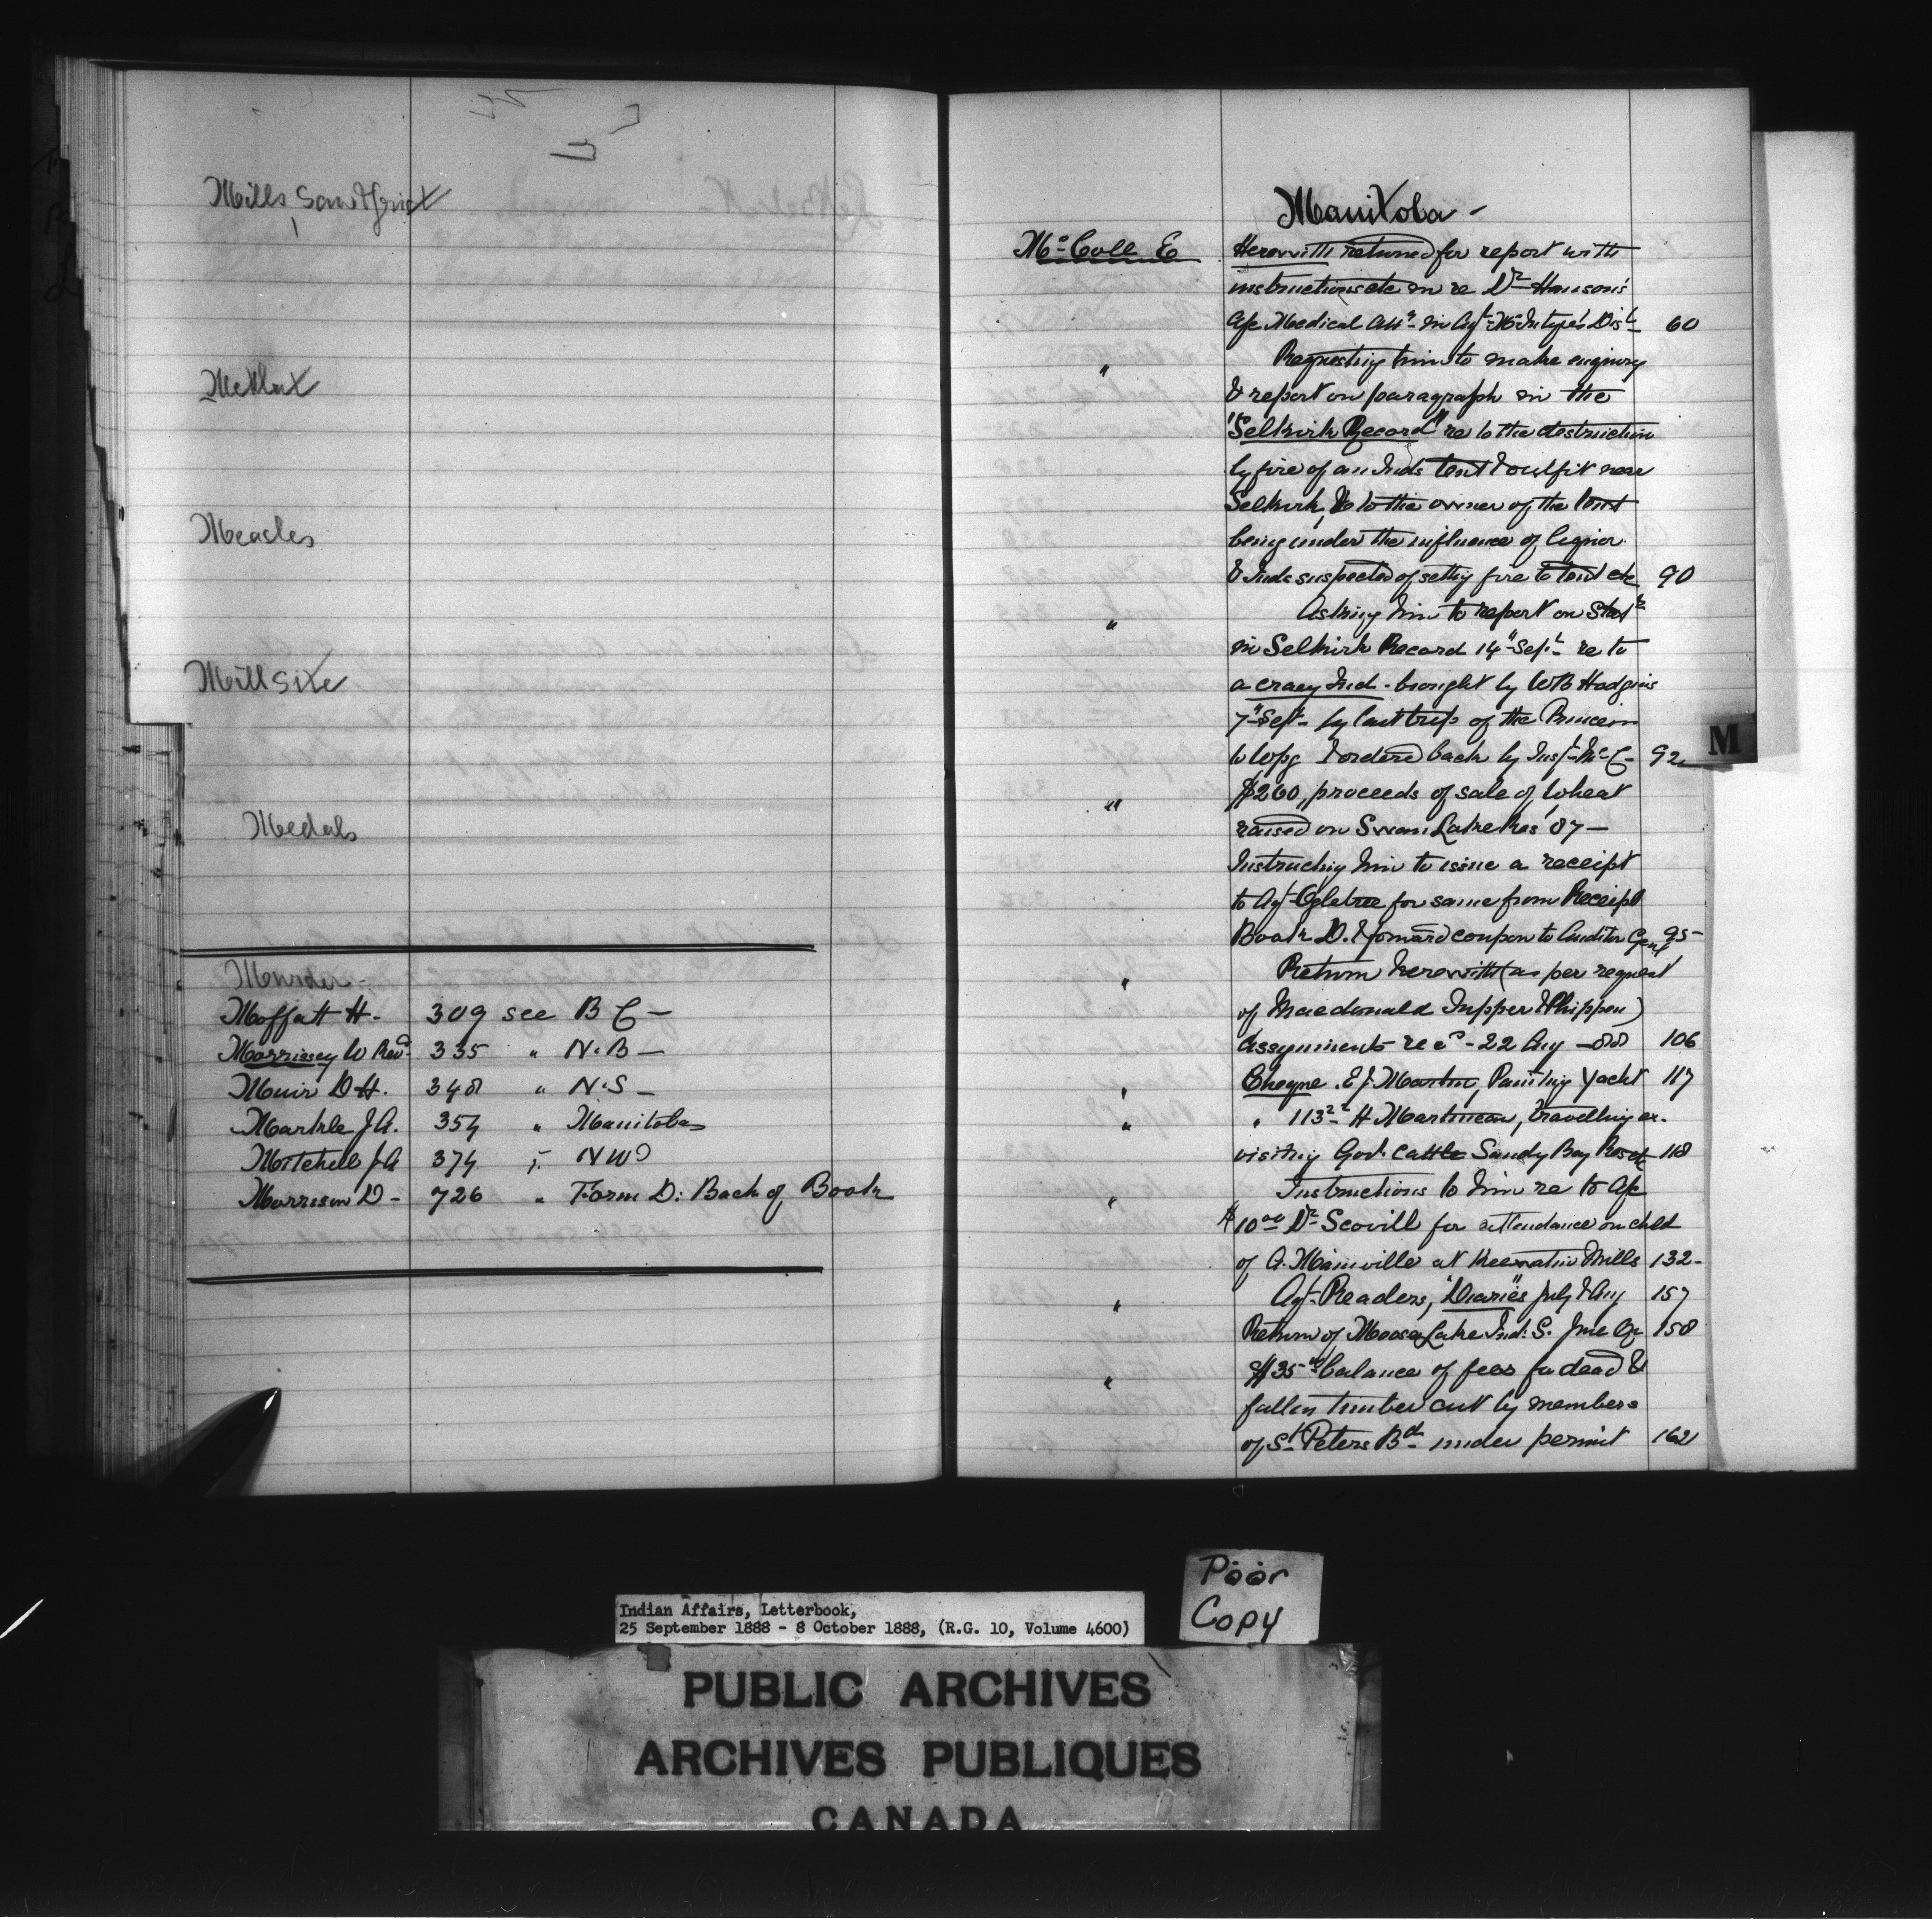 Mills Saw & Grist
Metlax
Measles
Mill Site
Medals
Murder -
Moffatt H - 309 see B C -
Morrissey W Revd - 335 " N.B -
Muir D H. 348 " N.S -
Markle J A. 354 " Manitoba
Mitchell J A 374 " N W
Morrison D - 726 " Form D: Back of Book
Manitoba -
McColl E Herewith returned for report with
instructions etc in re Dr Hanson's
a/c Medical Att. in Agt McIntyre's Dist 60
" Requesting him to make enquiry
& report on paragraph in the
"Selkirk Record" re to the destruction
by fire of an Inds tent & outfit near
Selkirk, & to the owner of the tent
being under the influence of liquor.
& Inds suspected of setting fire to tent etc 90
" Asking him to report on Statt
in Selkirk Record 14" Sept re to
a crazy Ind. brought by WB Hodgins
7" Sept - by last trip of the Princess
to Wpg & ordered back by Insp McC - 92
" $260, proceeds of sale of wheat
raised on Swan Lake Res '87 -
Instructing him to issue a receipt
to Agt Ogletree for same from Receipt
Book D. & forward coupon to Auditor Genl 95
" Return herewith (as per request
of Macdonald Tupper & Phippen)
Assignments recd - 22 Aug - 88 106
" Cheque. E J. Martin, Painting Yacht 117
" " 113 22 H Martineau, travelling ex.
visiting Govt cattle Sandy Bay Res etc 118
" Instructions to him re to a/c
$10 00 Dr Scovill for attendance on child
of A. Mainville at Keewatin Mills 132 -
" Agt Readers, "Diaries" July & Aug 157
Return of Moose Lake Ind: S. June Qr 158
" $35 00 balance of fees for dead &
fallen timber cut by members
of St Peters Bd under permit 162
M
Poor
Copy
Indian Affairs, Letterbook,
25 September 1888 - 8 October 1888, (R.G. 10, Volume 4600)
PUBLIC ARCHIVES
ARCHIVES PUBLIQUES
CANADA